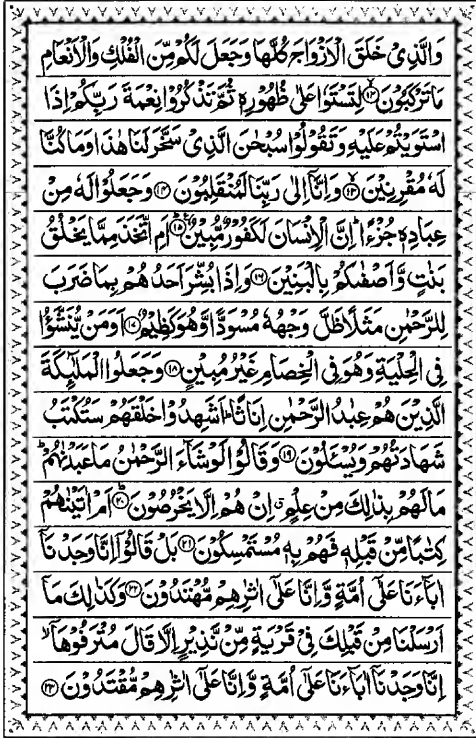 وَالَّذِيْ خَلَقَ الْاَزْوَاجَ كُلَّهَا وَجَعَلَ لَكُمْ مِّنَ الْفُلْكِ وَالْاَنْعَامِ
مَا تَرْكَبُوْنَ ﴿۱۲﴾ لِتَسْتَوٗا عَلٰى ظُهُوْرِهٖ ثُمَّ تَذْكُرُوْا نِعْمَةَ رَبِّكُمْ اِذَا
اسْتَوَيْتُمْ عَلَيْهِ وَتَقُوْلُوْا سُبْحٰنَ الَّذِيْ سَخَّرَ لَنَا هٰذَا وَمَا كُنَّا
لَهٗ مُقْرِنِيْنَ ﴿۱۳﴾ وَاِنَّاۤ اِلٰى رَبِّنَا لَمُنْقَلِبُوْنَ ﴿۱۴﴾ وَجَعَلُوْا لَهٗ مِنْ
عِبَادِهٖ جُزْءًا ؕ اِنَّ الْاِنْسَانَ لَكَفُوْرٌ مُّبِيْنٌ ﴿۱۵﴾ اَمِ اتَّخَذَ مِمَّا يَخْلُقُ
بَنٰتٍ وَّاَصْفٰىكُمْ بِالْبَنِيْنَ ﴿۱۶﴾ وَاِذَا بُشِّرَ اَحَدُهُمْ بِمَا ضَرَبَ
لِلرَّحْمٰنِ مَثَلًا ظَلَّ وَجْهُهٗ مُسْوَدًّا وَّهُوَ كَظِيْمٌ ﴿۱۷﴾ اَوَمَنْ يُّنَشَّؤُا
فِي الْحِلْيَةِ وَهُوَ فِي الْخِصَامِ غَيْرُ مُبِيْنٍ ﴿۱۸﴾ وَجَعَلُوا الْمَلٰٓئِكَةَ
الَّذِيْنَ هُمْ عِبٰدُ الرَّحْمٰنِ اِنَاثًا ؕ اَشَهِدُوْا خَلْقَهُمْ ؕ سَتُكْتَبُ
شَهَادَتُهُمْ وَيُسْـَٔلُوْنَ ﴿۱۹﴾ وَقَالُوْا لَوْ شَآءَ الرَّحْمٰنُ مَا عَبَدْنٰهُمْ ؕ
مَا لَهُمْ بِذٰلِكَ مِنْ عِلْمٍ ۗ اِنْ هُمْ اِلَّا يَخْرُصُوْنَ ﴿۲۰﴾ اَمْ اٰتَيْنٰهُمْ
كِتٰبًا مِّنْ قَبْلِهٖ فَهُمْ بِهٖ مُسْتَمْسِكُوْنَ ﴿۲۱﴾ بَلْ قَالُوْۤا اِنَّا وَجَدْنَاۤ
اٰبَآءَنَا عَلٰۤى اُمَّةٍ وَّاِنَّا عَلٰۤى اٰثٰرِهِمْ مُّهْتَدُوْنَ ﴿۲۲﴾ وَكَذٰلِكَ مَاۤ
اَرْسَلْنَا مِنْ قَبْلِكَ فِيْ قَرْيَةٍ مِّنْ نَّذِيْرٍ اِلَّا قَالَ مُتْرَفُوْهَاۤ ۙ
اِنَّا وَجَدْنَاۤ اٰبَآءَنَا عَلٰۤى اُمَّةٍ وَّاِنَّا عَلٰۤى اٰثٰرِهِمْ مُّقْتَدُوْنَ ﴿۲۳﴾